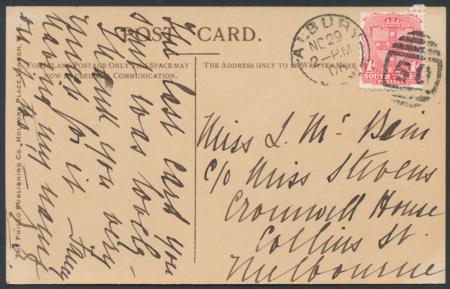 POST CARD.
FOR INLAND POSTAGE ONLY THE SPACE MAY
NOW BE USED FOR COMMUNICATION.
THE ADDRESS ONLY TO BE WRITTEN HERE
ALBURY
NO 29
2 - PM
SOUTH WALES
POSTAGE
The last card you
sent was lovely
Thank you very
much for it
having my
Miss L. Mc Bain
C/o Miss Stevens
Cromwell House
Collins St.
Melbourne
THE PHILCO PUBLISHING CO., HOLBORN PLACE, LONDON,